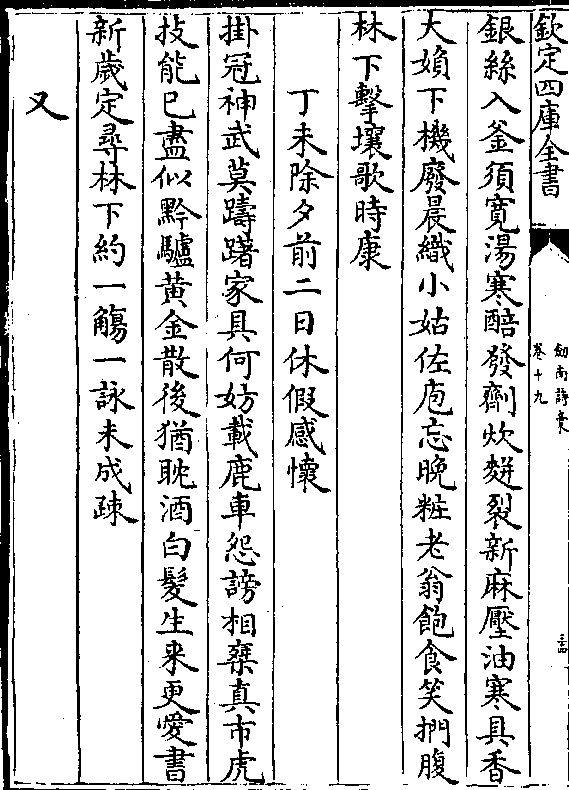 欽定四庫全書
劒南詩藁
卷十九
銀絲入釜須寛湯寒醅發劑炊麫裂新麻壓油寒具香
大媍下機廢晨織小姑佐庖忘晚粧老翁飽食笑捫腹
林下擊壤歌時康
丁未除夕前二日休假感懷
掛冠神武莫躊躇家具何妨載鹿車怨謗相乗真市虎
技能已盡似黔驢黃金散後猶耽酒白髮生来更愛書
新歲定尋林下約一觴一詠未成疎
又